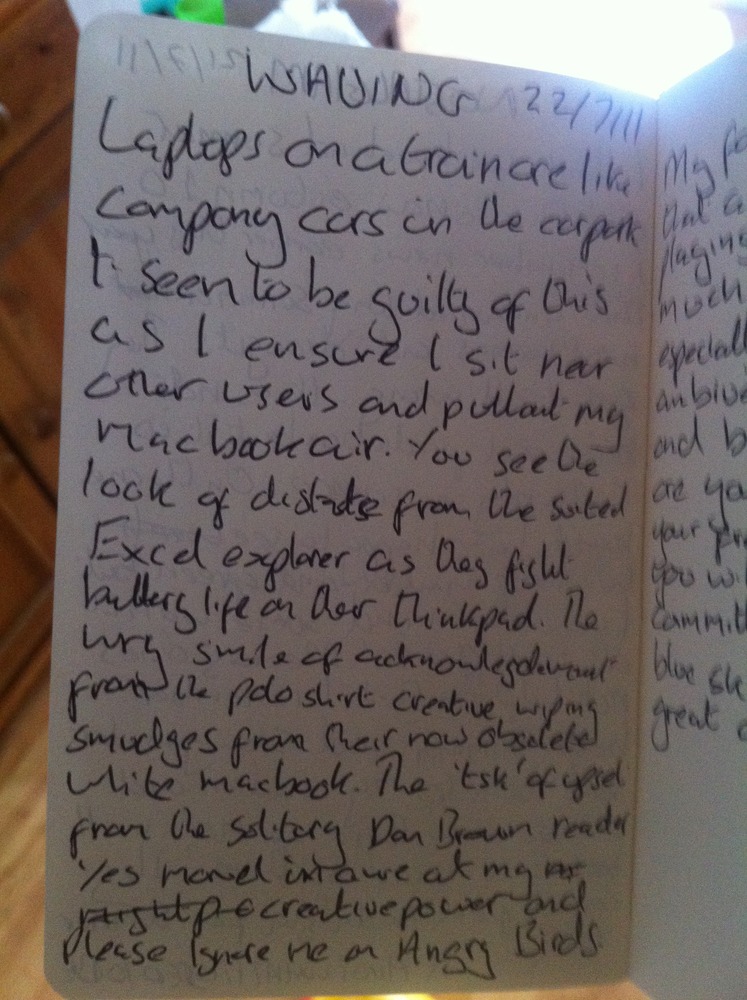 WAVING 22/7/11
Laptops on a train are like
company cars in the carpark
I seen to be guilty of this
as I ensure I sit near
other users and pull out my
Macbook air. You see the
look of distate from the suited
Excel explorer as they fight
battery life on their thinkpad. The
wry smile of acknowlegdement
from the polo shirt creative wiping
smudges from their now obsolete
white macbook. The 'tsk' of upset
from the solitary Dan Brown reader
Yes marvel in awe at my
creative power and
Please Ignore me on Angry Birds
My
that
playing
much
especiall
and b
are yo
your
you wi
committ
blue sk
great